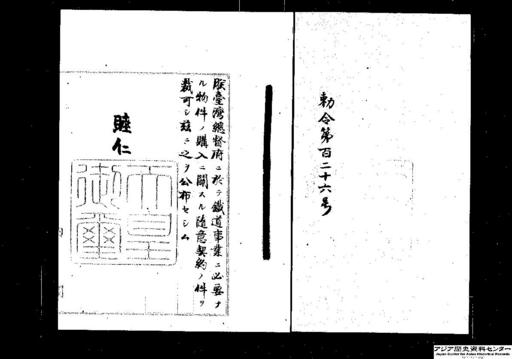 勅令第百二十六号
朕臺灣總督府ニ於テ鐵道事業ニ必要ナ
ル物件ノ購入ニ關スル随意契約ノ件ヲ
裁可シ茲ニ之ヲ公布セシム
睦仁
天皇
御璽
アジア歴史資料センター
Japan Center for Asian Historical Records